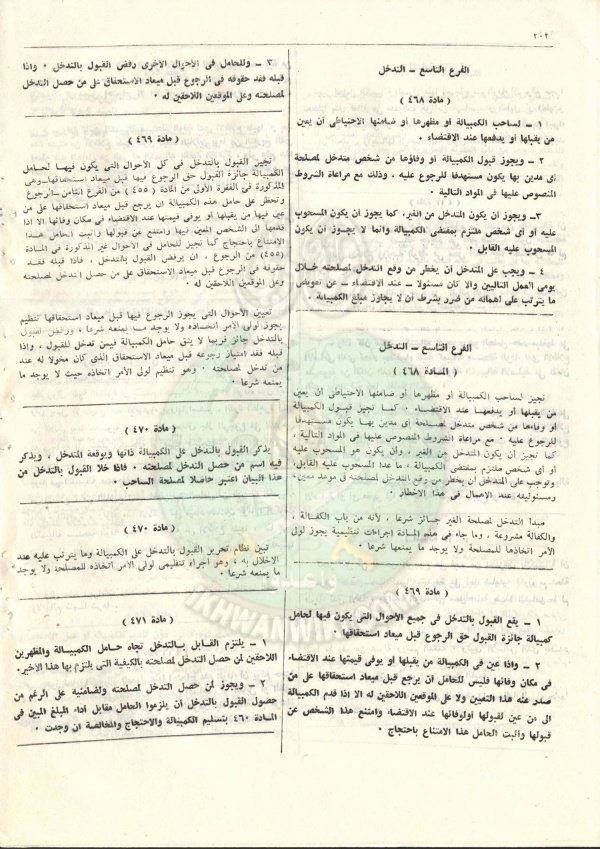 ٢٠٢
الفرع التاسع ــ التدخل
( مادة ٤٦٨ )
١ ــ لساحب الكمبيالة أو مظهرها أو ضامنها الاحتياطى أن يعين
من يقبلها أو يدفعها عند الاقتضاء .
٢ ــ ويجوز قبول الكمبيالة أو وفاؤها من شخص متدخل لمصلحة
أى مدين بها يكون مستهدفا للرجوع عليه ، وذلك مع مراعاة الشروط
المنصوص عليها فى المواد التالية .
٣ــ ويجوز أن يكون المتدخل من الغير، كما يجوز أن يكون المسحوب
عليه أو أى شخص ملتزم بمقتضى الكمبيالة وانما لا يجوز أن يكون
المسحوب عليه القابل .
٤ ــ ويجب على المتدخل أن يخطر من وقع التدخل لمصلحته خلال
يومى العمل التاليين والا كان مسئولا ــ عند الاقتضاء ــ عن تعويض
ما يترتب على اهماله من ضرر بشرط أن لا يجاوز مبلغ الكمبيالة .
الفرع التاسع ــ التدخل
( المادة ٤٦٨ )
تجيز لساحب الكمبيالة أو مظهرها أو ضامنها الاحتياطى أن يعين
من يقبلها أو يدفعها عند الاقتضاء . كما تجيز قبول الكمبيالة
أو وفاءها من شخص متدخل لمصلحة أى مدين بها يكون مستهدفا
للرجوع عليه . مع مراعاة الشروط المنصوص عليها فى المواد التالية ،
كما تجيز أن يكون المتدخل من الغير ، وأن يكون هو المسحوب عليه
أو أى شخص ملتزم بمقتضى الكمبيالة ، ما عدا المسحوب عليه القابل،
وتوجب على المتدخل أن يخطر من وقع التدخل لمصلحته فى موعد معين.
ومسئوليته عند الاهمال فى هذا الاخطار .
مبدأ التدخل لمصلحة الغير جائز شرعا ، لأنه من باب الكفالة ،
والكفالة مشروعة ، وما جاء فى هذه المادة اجراءات تنظيمية يجوز لولى
الأمر اتخاذها للمصلحة ولا يوجد ما يمنعها شرعا .
( مادة ٤٦٩ )
١ ــ يقع القبول بالتدخل فى جميع الأحوال التى يكون فيها لحامل
كمبيالة جائزة القبول حق الرجوع قبل ميعاد استحقاقها .
٢ ــ واذا عين فى الكمبيالة من يقبلها أو يوفى قيمتها عند الاقتضاء
فى مكان وفائها فليس للحامل أن يرجع قبل ميعاد استحقاقها على من
صدر عنه هذا التعيين ولا على الموقعين اللاحقين له الا اذا قدم الكمبيالة
الى من عين لقبولها أولوفائها عند الاقتضاء وامتنع هذا الشخص عن
قبولها وأثبت الحامل هذا الامتناع باحتجاج .
٣ ــ وللحامل فى الأحوال الأخرى رفض القبول بالتدخل . واذا
قبله فقد حقوقه فى الرجوع قبل ميعاد الاستحقاق على من حصل التدخل
لمصلحته وعلى الموقعين اللاحقين له .
( مادة ٤٦٩ )
تجيز القبول بالتدخل فى كل الأحوال التى يكون فيها لحامل
الكمبيالة جائزة القبول حق الرجوع فيها قبل ميعاد استحقاقها ــ وهى
المذكورة فى الفقرة الأولى من المادة ( ٤٥٥ ) من الفرع الثامن ــ الرجوع
وتحظر على حامل هذه الكمبيالة ان يرجع قبل ميعاد استحقاقها على من
عين فيها من يقبلها أو يوفى قيمتها عند الاقتضاء فى مكان وفائها الا اذا
قدمها الى الشخص المعين فيها وامتنع عن قبولها وأثبت الحامل هذا
الامتناع باحتجاج كما تجيز للحامل فى الأحوال غير المذكورة فى المادة
(٤٥٥) من الرجوع ، ان يرفض القبول بالتدخل ، فاذا قبله فقد
حقوقه فى الرجوع قبل ميعاد الاستحقاق على من حصل التدخل لمصلحته
وعلى الموقعين اللاحقين له .
تعيين الأحوال التى يجوز الرجوع فيها قبل ميعاد استحقاقها تنظيم
يجوز لولى الأمر اتخاذه ولا يوجد ما يمنعه شرعا ، ورفض القبول
بالتدخل جائز فربما لا يثق حامل الكمبيالة فيمن تدخل للقبول ، واذا
قبله فقد امتياز رجوعه قبل ميعاد الاستحقاق الذى كان مخولا له عند
من تدخل لمصلحته . وهو تنظيم لولى الأمر اتخاذه حيث لا يوجد ما
يمنعه شرعا .
( مادة ٤٧٠ )
يذكر القبول بالتدخل على الكمبيالة ذاتها ويوقعه المتدخل ، ويذكر
فيه اسم من حصل التدخل لمصلحته . فاذا خلا القبول بالتدخل من
هذا البيان اعتبر حاصلا لمصلحة الساحب .
( مادة ٤٧٠ )
تبين نظام تحرير القبول بالتدخل على الكمبيالة وما يترتب عليه عند
الاخلال به ، وهو اجراء تنظيمى لولى الأمر اتخاذه للمصلحة ولا يوجد
ما يمنعه شرعا .
( مادة ٤٧١ )
١ ــ يلتزم القابل بالتدخل تجاه حامل الكمبيالة والمظهرين
اللاحقين لمن حصل التدخل لمصلحته بالكيفية التى يلتزم بها هذا الأخير.
٢ ــ ويجوز لمن حصل التدخل لمصلحته ولضامنيه على الرغم من
حصول القبول بالتدخل أن يلزموا الحامل مقابل أداء المبلغ المبين فى
المادة ٤٦٠ بتسليم الكمبيالة والاحتجاج والمخالصة ان وجدت .